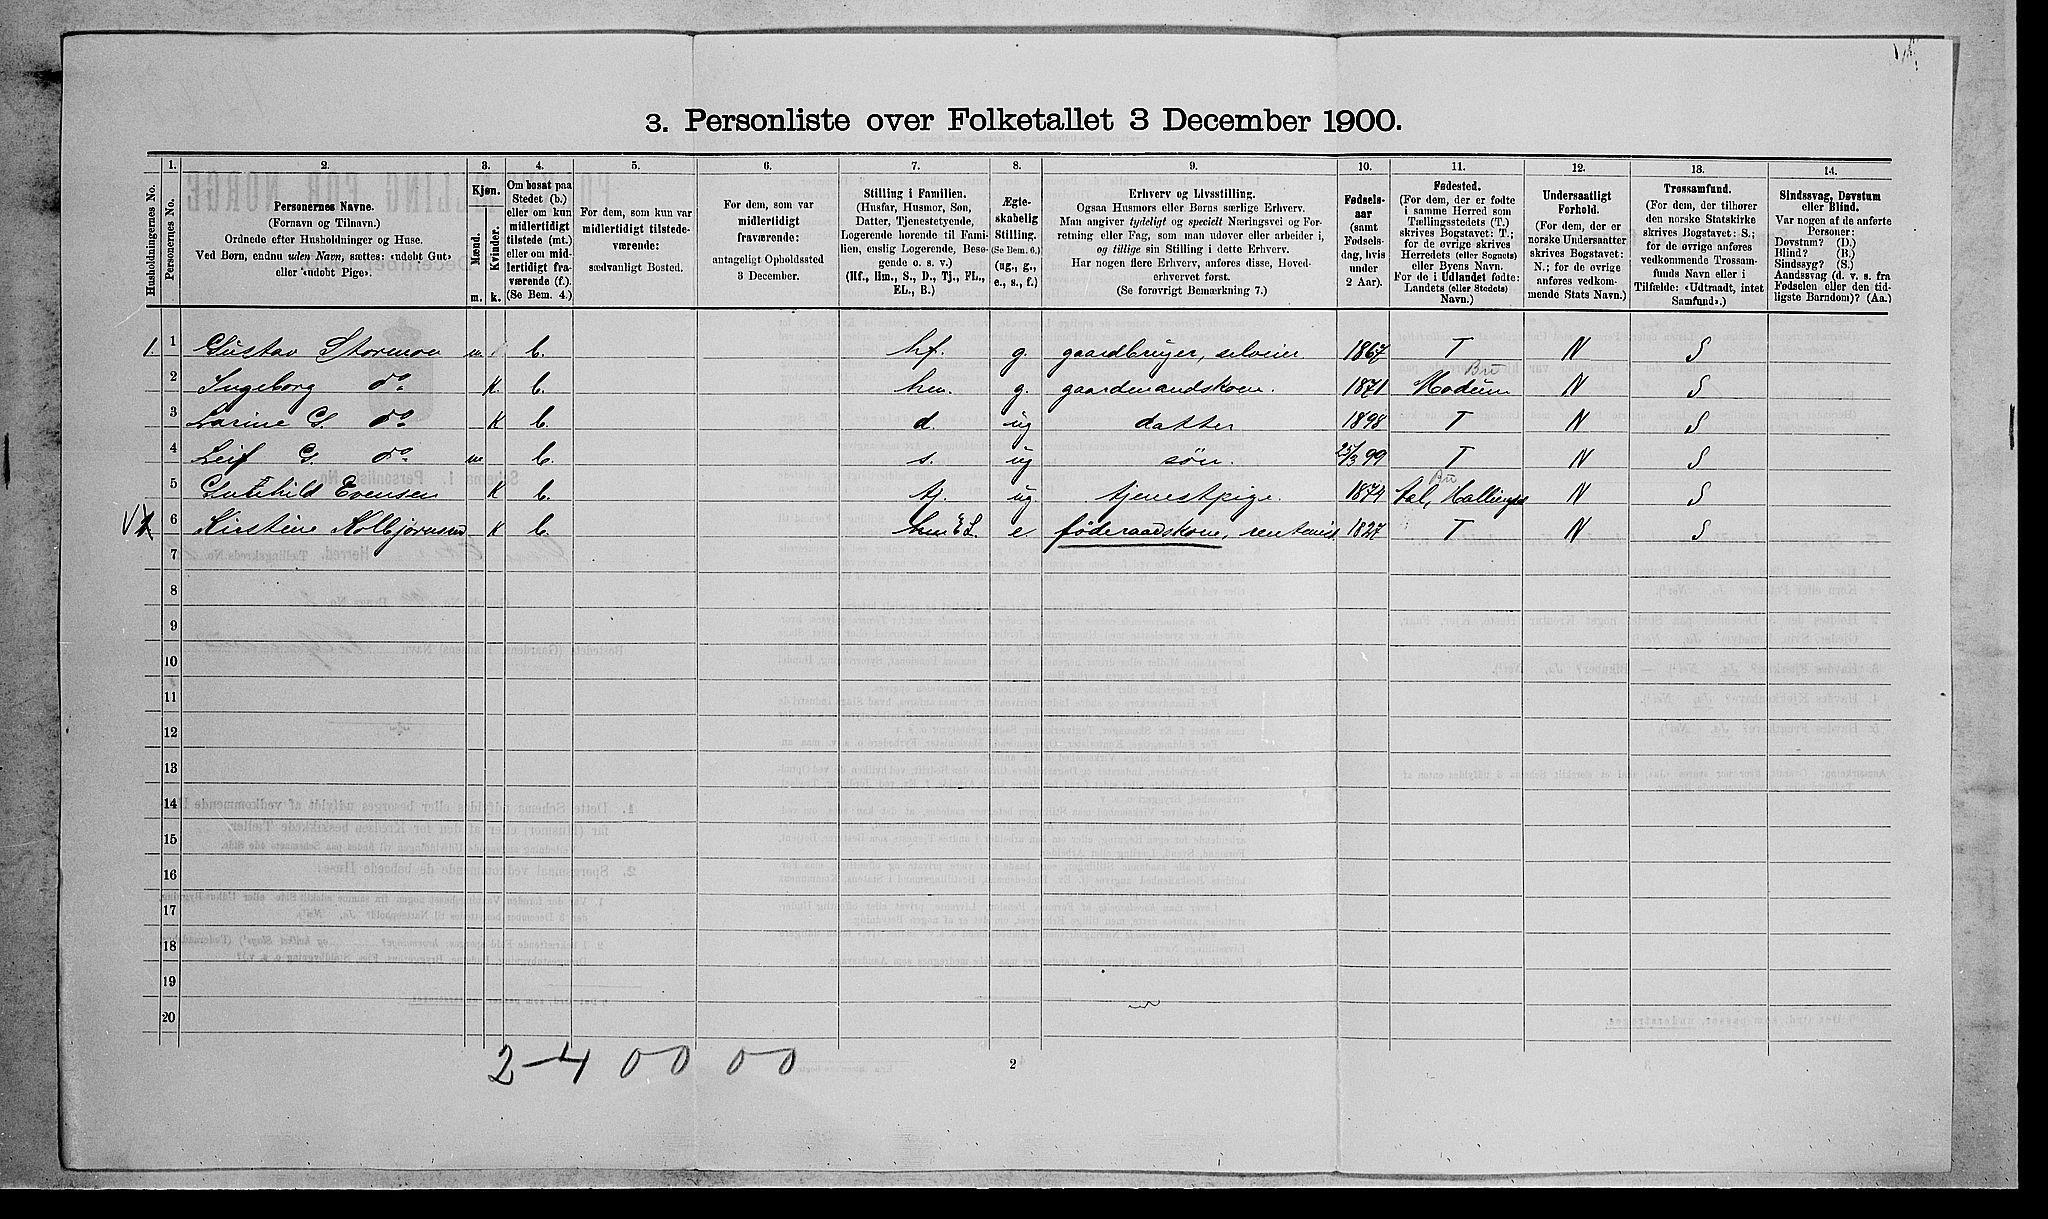 3. Personliste over Folketallet 3 December 1900.
Husholdningernes No.
1. Personernes No.
2. Personernes Navne.
(Fornavn og Tilnavn.)
Ordnede efter Husholdninger og Huse.
Ved Børn, endnu uden Navn, sættes: «udøbt Gut»
eller «udøbt Pige».
3. Kjøn.
Mænd. m.
Kvinder. k.
4. Om bosat paa
Stedet (b.)
eller om kun
midlertidigt
tilstede (mt.)
eller om mid-
lertidigt fra-
værende (f.).
(Se Bem. 4.)
5. For dem, som kun var
midlertidigt tilstede-
værende:
sædvanligt Bosted.
6. For dem, som var
midlertidigt
fraværende:
antageligt Opholdssted
3 December.
7. Stilling i Familien.
(Husfar, Husmor, Søn,
Datter, Tjenestetyende,
Logerende hørende til Fami-
lien, enslig Logerende, Besø-
gende o. s. v.)
(Hf., Hm., S., D., Tj., FL.,
EL., B.)
8. Ægte-
skabelig
Stilling.
(Se Bem. 6.)
(ug., g.,
e., s., f.)
9. Erhverv og Livsstilling.
Ogsaa Husmors eller Børns særlige Erhverv.
Man angiver tydeligt og specielt Næringsvei og For-
retning eller Fag, som man udøver eller arbeider i,
og tillige sin Stilling i dette Erhverv.
Har nogen flere Erhverv, anføres disse, Hoved-
erhvervet først.
(Se forøvrigt Bemærkning 7.)
10. Fødsels-
aar
(samt
Fødsels-
dag, hvis
under
2 Aar).
11. Fødested.
(For dem, der er fødte
i samme Herred som
Tællingsstedets (T.)
skrives Bogstavet: T.;
for de øvrige skrives
Herredets (eller Sognets)
eller Byens Navn.
For de i Udlandet fødte:
Landets (eller Stedets)
Navn.)
12. Undersaatligt
Forhold.
(For dem, der er
norske Undersaatter
skrives Bogstavet:
N.; for de øvrige
anføres vedkom-
mende Stats Navn.)
13. Trossamfund.
(For dem, der tilhører
den norske Statskirke
skrives Bogstavet: S.;
for de øvrige anføres
vedkommende Trossam-
funds Navn eller i
Tilfælde: «Udtraadt, intet
Samfund».)
14. Sindssvag, Døvstum
eller Blind.
Var nogen af de anførte
Personer:
Døvstum? (D.)
Blind? (B.)
Sindssyg? (S.)
Aandssvag (d. v. s. fra
Fødselen eller den tid-
ligste Barndom)? (Aa.)
1. 1 Gustav Stormoen m. b. hf. g. gaardbruger, selveier 1867 T N S
2 Ingeborg do. K. b. hm. g. gaardmandskone. 1871 Modum Bu N S
3 Larine G. do K b. d. ug datter 1898 T N S
4 Leif G. do. m b. s. ug søn. 25/3 99 T N S
5 Gunhild Evensen K b. tj. ug. tjenestpige. 1874 Aal, Hallingd Bu N S
2 6 Kirstine Kolbjørnsen K b. hm EL. e føderaadskone, rentenist 1827 T N S
7
8
9
10
11
12
13
14
15
16
17
18
19
20
2-4 00 00
2